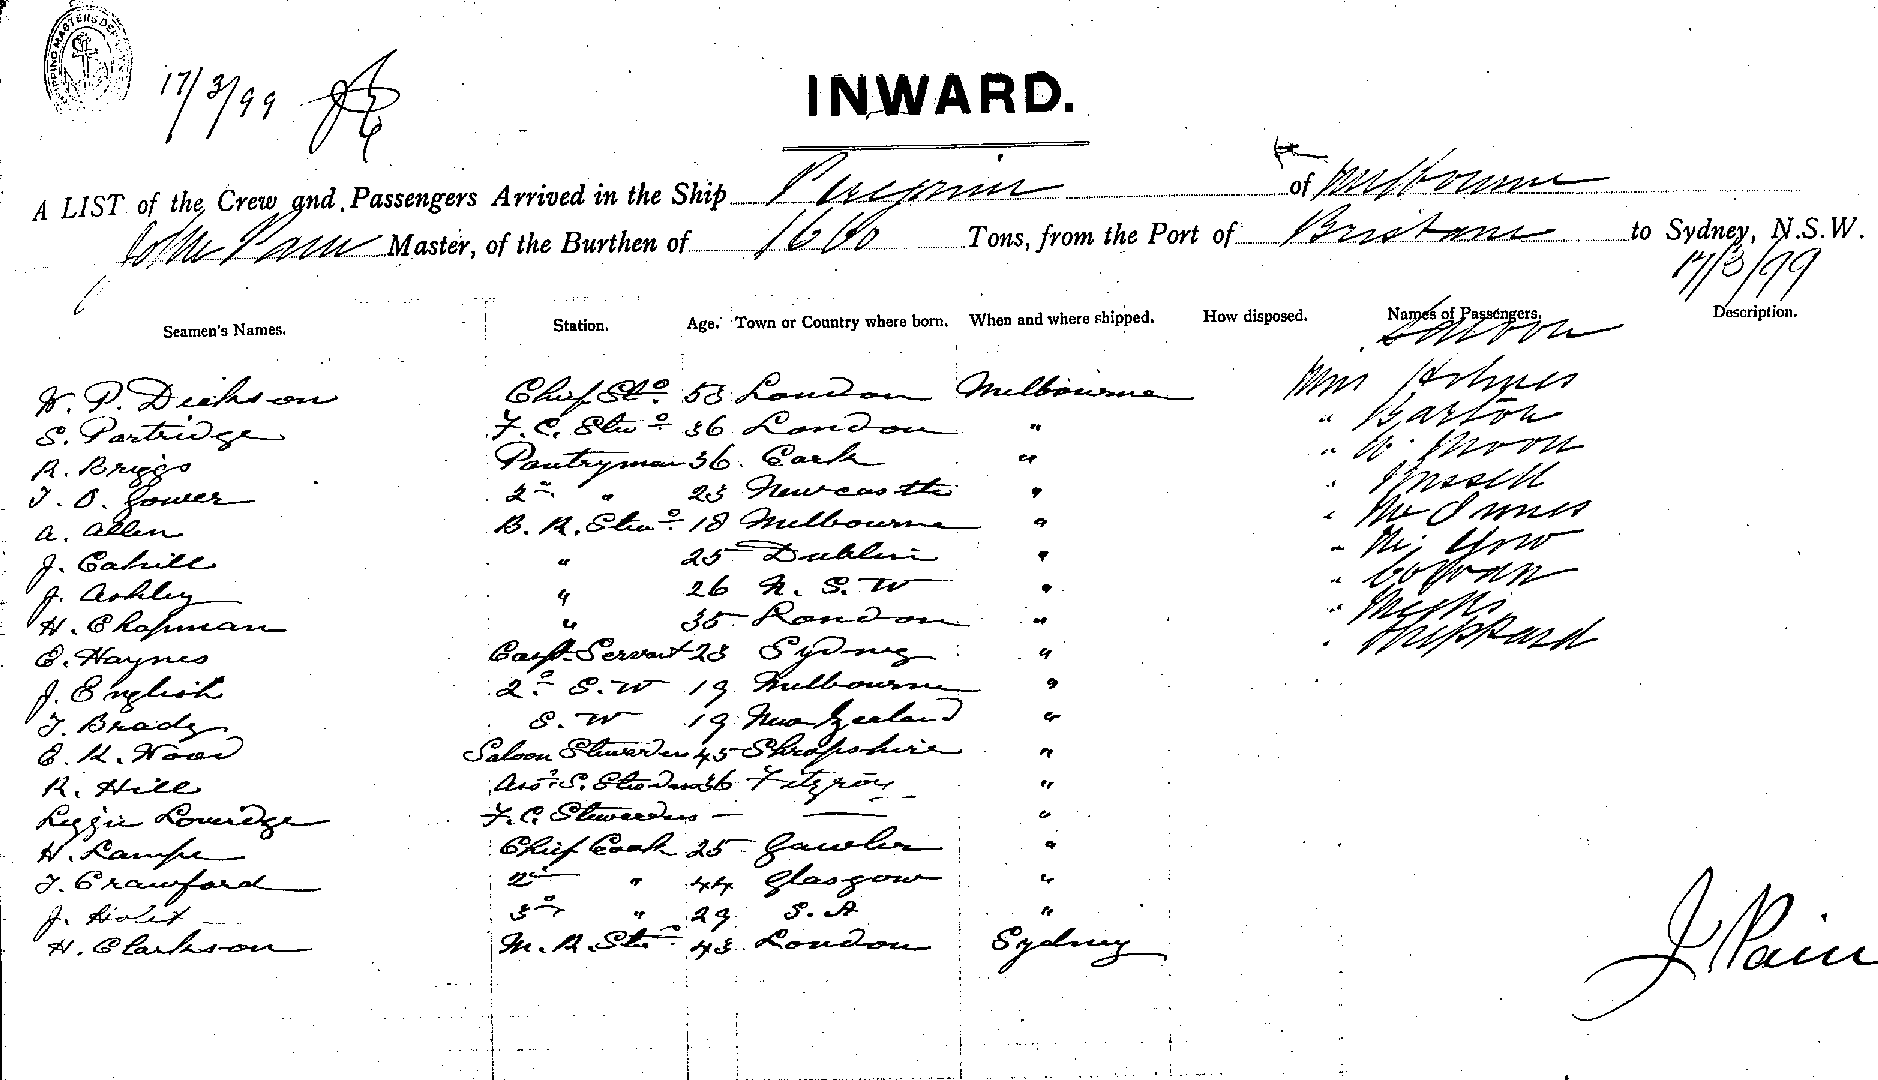 SHIPPING MASTERS DEP
17/3/99
INWARD.
A LIST of the Crew and Passengers Arrived in the Ship Peregrine of Melbourne
John Pain Master, of the Burthen of 1660 Tons, from the Port of Brisbane to Sydney, N.S.W.
17/3/99
Seamen's Names. Station. Age. Town or Country where born. When and where shipped. How disposed. Names of Passengers. Description.
Saloon
W. P. Dickson Chief Std. 53 London Melbourne Mrs Holmes
S. Partridge F. C. Stwd 36 London " " Barton
R. Briggs Pantryman 36 Cork " " W. Moon
T. O. Gower 2nd " 23 Newcastle " " Russell
A. Allen B. R. Stwd. 18 Melbourne " " McInnes
J. Cahill " 25 Dublin " "
J. Ashley " 26 N. S. W " "
H. Chapman " 35 London " "
E. Haynes Capt. Servant 23 Sydney " " Sheppard
J. English 2nd S. W 19 Melbourne "
T. Brady S. W 19 New Zealand "
E. K. Wood Saloon Stewardess 45 Shropshire "
R. Hill Asst. S. Stewdess 36 Fitzroy "
Lizzie Loveridge F. C. Stewardess — — "
H. Lampe Chief Cook 25 Gawler "
T. Crawford 2nd " 44 Glasgow "
J. Holst 3rd " 29 S. A "
H. Clarkson M. R. Std 43 London Sydney
J Pain